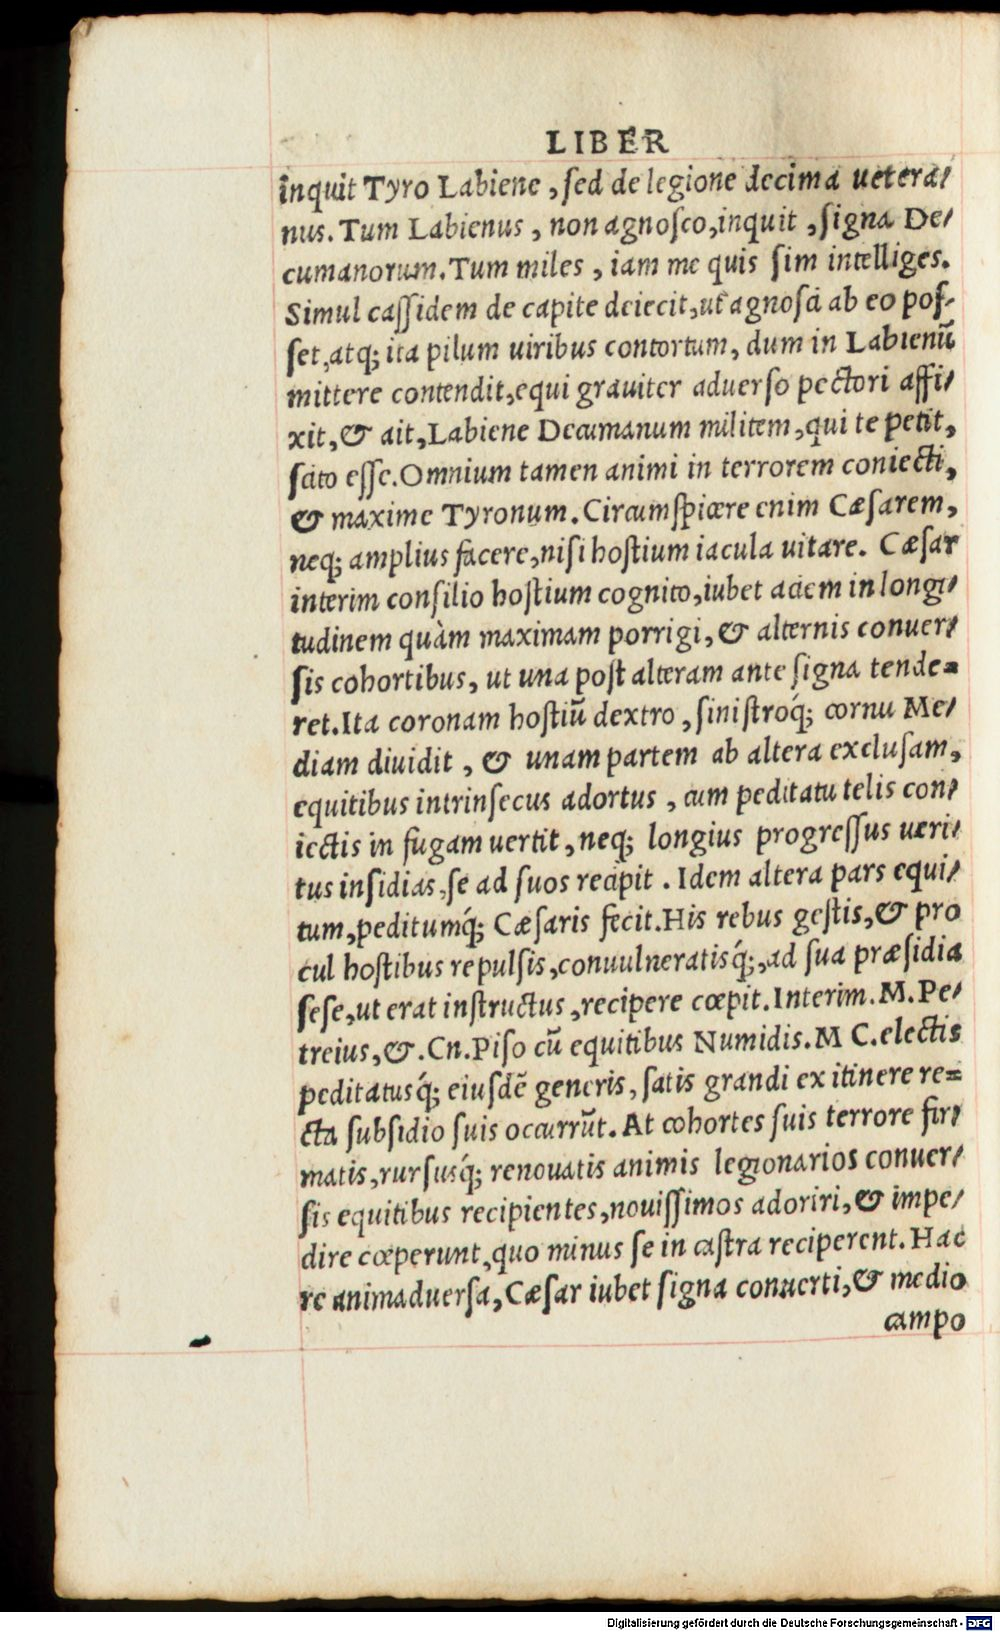 LIBER
inquit Tyro Labiene, sed de legione decima uetera/
nus. Tum Labienus, non agnosco, inquit, signa De/
cumanorum. Tum miles, iam me quis sim intelliges.
Simul cassidem de capite deiecit, ut agnosci ab eo pos/
set, atq; ita pilum uiribus contortum, dum in Labienū
mittere contendit, equi grauiter aduerso pectori affi/
xit, & ait, Labiene Decumanum militem, qui te petit,
scito esse. Omnium tamen animi in terrorem coniecti,
& maxime Tyronum. Circumspicere enim Cæsarem,
neq; amplius facere, nisi hostium iacula uitare. Cæsar
interim consilio hostium cognito, iubet aciem in longi/
tudinem quàm maximam porrigi, & alternis conuer/
sis cohortibus, ut una post alteram ante signa tende=
ret. Ita coronam hostiū dextro, sinistroq́; cornu Me/
diam diuidit, & unam partem ab altera exclusam,
equitibus intrinsecus adortus, cum peditatu telis con/
iectis in fugam uertit, neq; longius progressus ueri/
tus insidias, se ad suos recipit. Idem altera pars equi/
tum, peditumq́; Cæsaris fecit. His rebus gestis, & pro
cul hostibus repulsis, conuulneratisq́;, ad sua præsidia
sese, ut erat instructus, recipere cœpit. Interim. M. Pe/
treius, &. Cn. Piso cū equitibus Numidis. M C. electis
peditatusq́; eiusdē generis, satis grandi ex itinere re=
cta subsidio suis occurrūt. At cohortes suis terrore fir/
matis, rursusq́; renouatis animis legionarios conuer/
sis equitibus recipientes, nouissimos adoriri, & impe/
dire cœperunt, quo minus se in castra reciperent. Hac
re animaduersa, Cæsar iubet signa conuerti, & medio
campo
Digitalisierung gefördert durch die Deutsche Forschungsgemeinschaft - DFG